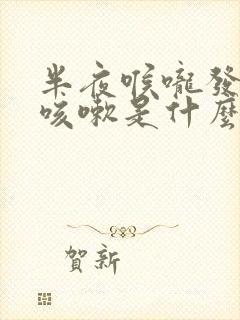 半夜喉嚨發
咳嗽是什麼
賀新